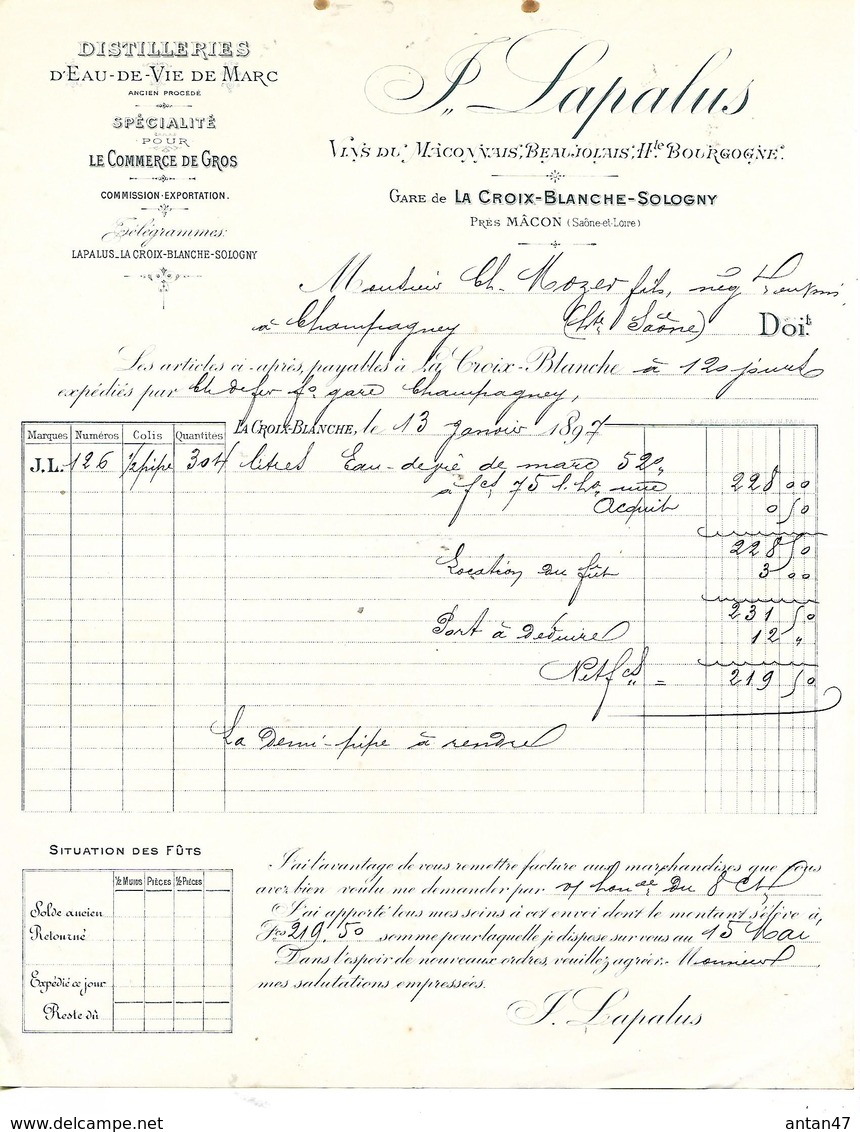 DISTILLERIES
D'EAU-DE-VIE DE MARC
ANCIEN PROCEDÉ
SPÉCIALITÉ
POUR
LE COMMERCE DE GROS
COMMISSION-EXPORTATION.
Télégrammes:
LAPALUS_LA CROIX-BLANCHE-SOLOGNY
J. Lapalus
VINS DU MÂCONNAIS, BEAUJOLAIS, Hte. BOURGOGNE.
GARE DE LA CROIX-BLANCHE-SOLOGNY
PRÈS MÂCON (Saône-et-Loire)
Monsieur Ch. Mozer fils, nég
à Champagney (Hte Saône) Doit
Les articles ci-après, payables à La Croix-Blanche à 120 jours
expédiés par Ch de fer fo gare Champagney,
LA CROIX-BLANCHE, le 13 janvier 1897
Marques Numéros Colis Quantites
J.L. 126 1/2 pipe 304 litres Eau-de-vie de marc 52°
à fcs 75 l. ho nue 228 00
Acquit 0 50
228 50
Location du fût 3 00
231 50
Port à déduire 12 "
Net fcs = 219 50
La Demi-pipe à rendre
SITUATION DES FÛTS
1/2 MUIDS PIÈCES 1/2 PIÈCES
Solde ancien
Retourné
Expédié ce jour
Reste dû
J'ai l'avantage de vous remettre facture aux marchandises que vous
avez bien voulu me demander par v/ honée du 8 Ct
J'ai apporté tous mes soins à cet envoi dont le montant s'élève à,
Fcs 219.50 somme pour laquelle je dispose sur vous au 15 Mai
Dans l'espoir de nouveaux ordres, veuillez agréer, Monsieur
mes salutations empressées.
J. Lapalus
antan47